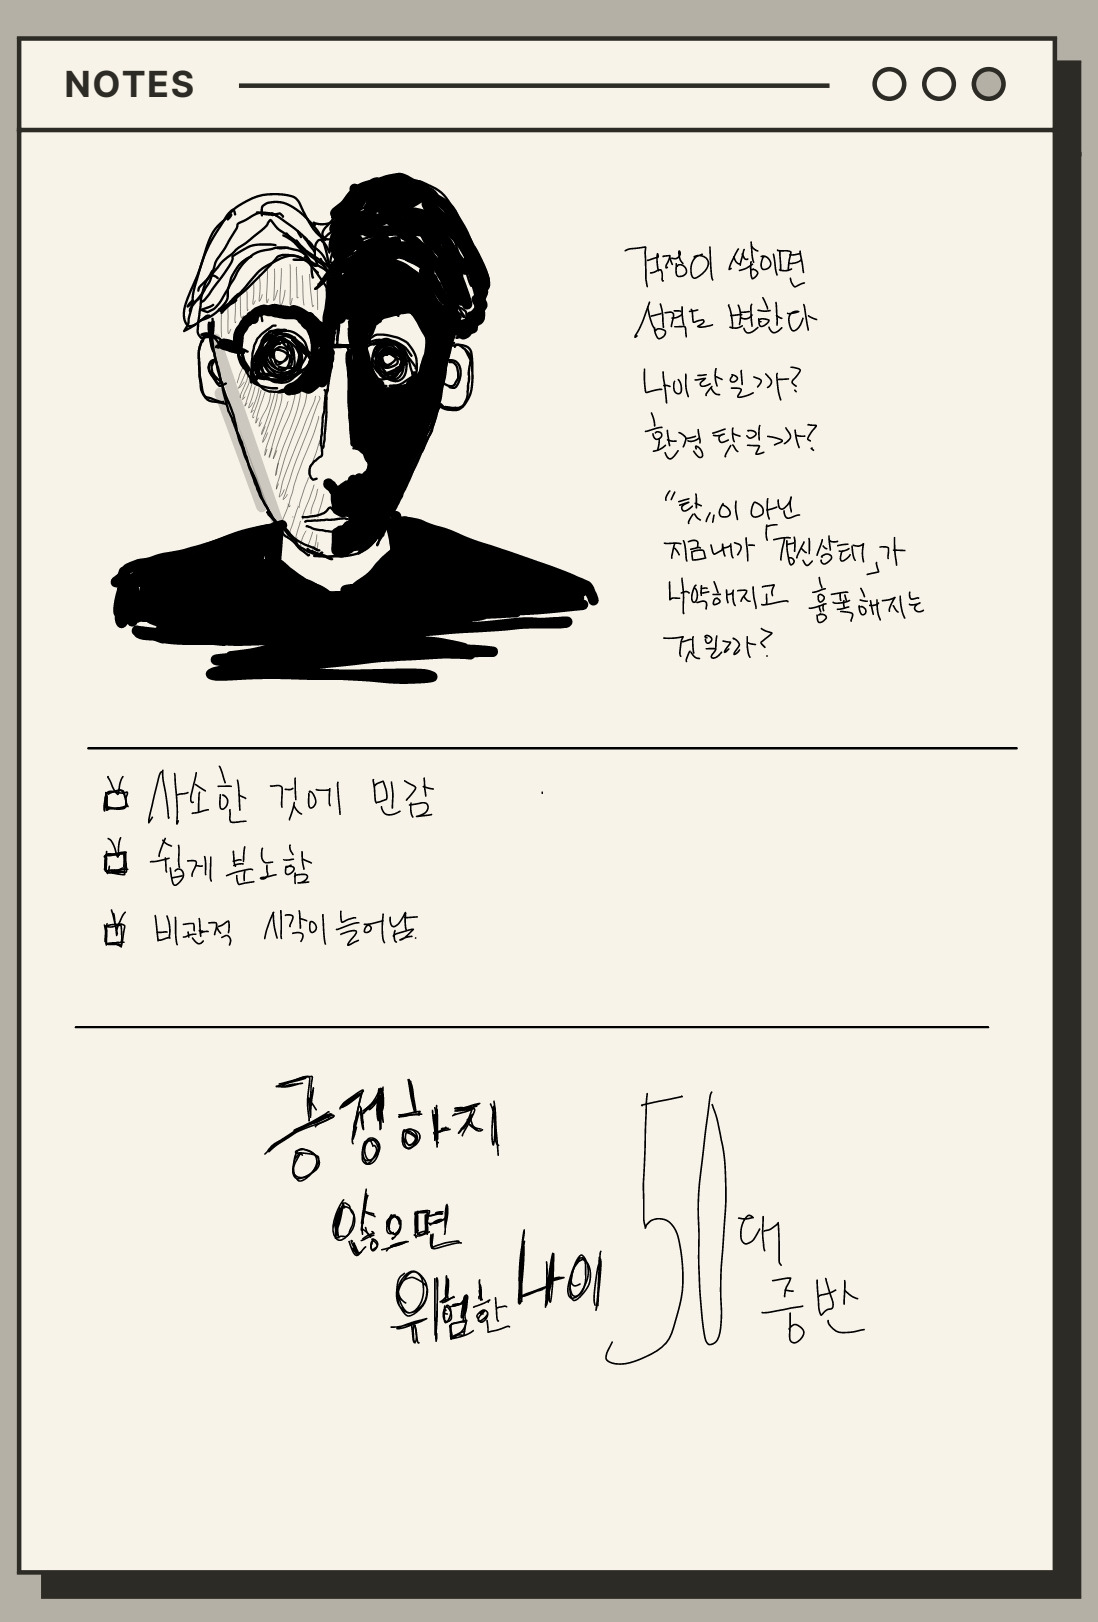 NOTES
걱정이 쌓이면
성격도 변한다
나이 탓일까?
환경 탓일까?
"탓"이 아닌
지금 내가 「정신상태」가
나약해지고 흉폭해지는
것일까?
사소한 것에 민감
쉽게 분노함
비관적 시각이 늘어남.
긍정하지
않으면
위험한 나이 50대
중반